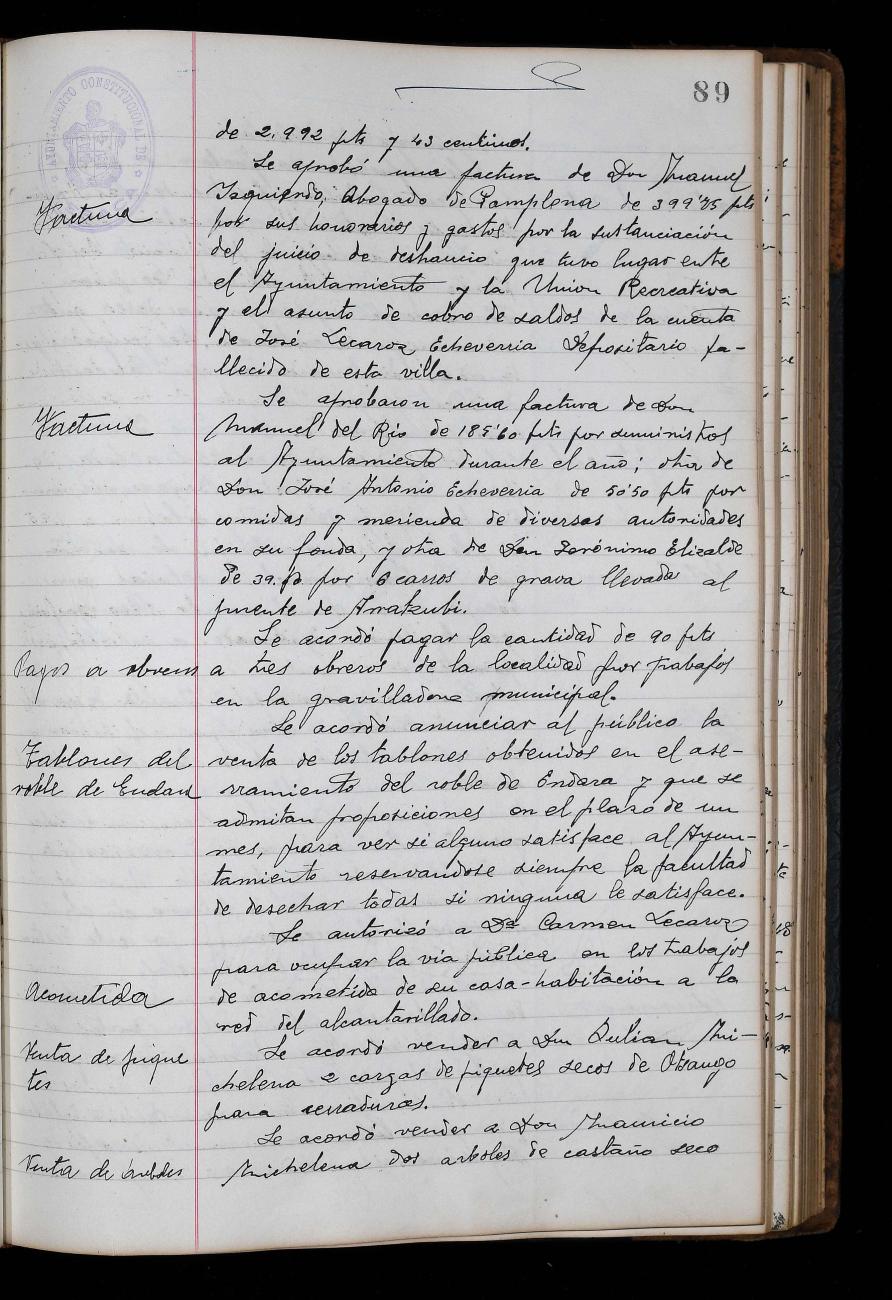 89
AYUNTAMIENTO CONSTITUCIONAL DE
de 2.992 pts y 43 centimos.
Se aprobó una factura de Don Manuel
Factura
Izquierdo, Abogado de Pamplona de 399'75 pts
por sus honorarios y gastos por la sustanciación
del juicio de deshaucio que tuvo lugar ente
el Ayuntamiento y la Union Recreativa
y el asunto de cobro de saldos de la cuenta
de José Lecaroz Echeverria Depositario fa-
llecido de esta villa.
Factura
Se aprobaron una factura de Don
Manuel del Rio de 185'60 pts por suministros
al Ayuntamiento durante el año; otra de
Don José Antonio Echeverria de 50'50 pts por
comidas y merienda de diversas autoridades
en su fonda, y otra de Don Jerónimo Elizalde
de 39. por 6 carros de grava llevada al
puente de Arrakubi.
Se acordó pagar la cantidad de 90 pts
Pagos a obreros
a tres obreros de la localidad por trabajos
en la gravilladora municipal.
Se acordó anunciar al público la
Tablones del
venta de los tablones obtenidos en el ase-
roble de Endara
rramiento del roble de Endara y que se
admitan proposiciones en el plazo de un
mes, para ver si alguno satisface al Ayun-
tamiento reservandose siempre la facultad
de desechar todas si ninguna le satisface.
Se autorizó a Dª Carmen Lecaroz
para ocupar la via pública en los trabajos
Acometida
de acometida de su casa-habitación a la
red del alcantarillado.
Venta de pique
tes
Se acordó vender a Don Julian Mi-
chelena 2 cargas de piquetes secos de Otsango
para cerraduras.
Se acordó vender a Don Mauricio
Venta de árboles
Michelena dos arboles de castaño seco